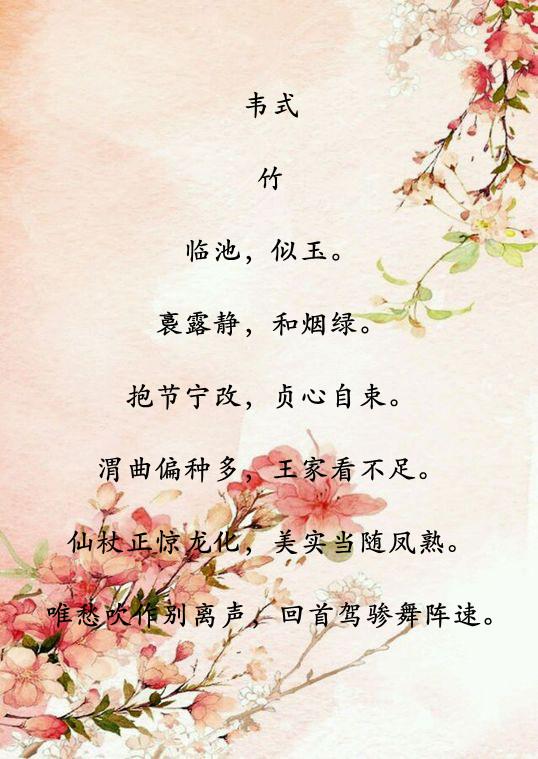 韦式
竹
临池，似玉。
裛露静，和烟绿。
抱节宁改，贞心自束。
渭曲偏种多，王家看不足。
仙杖正惊龙化，美实当随凤熟。
唯愁吹作别离声，回首驾骖舞阵速。